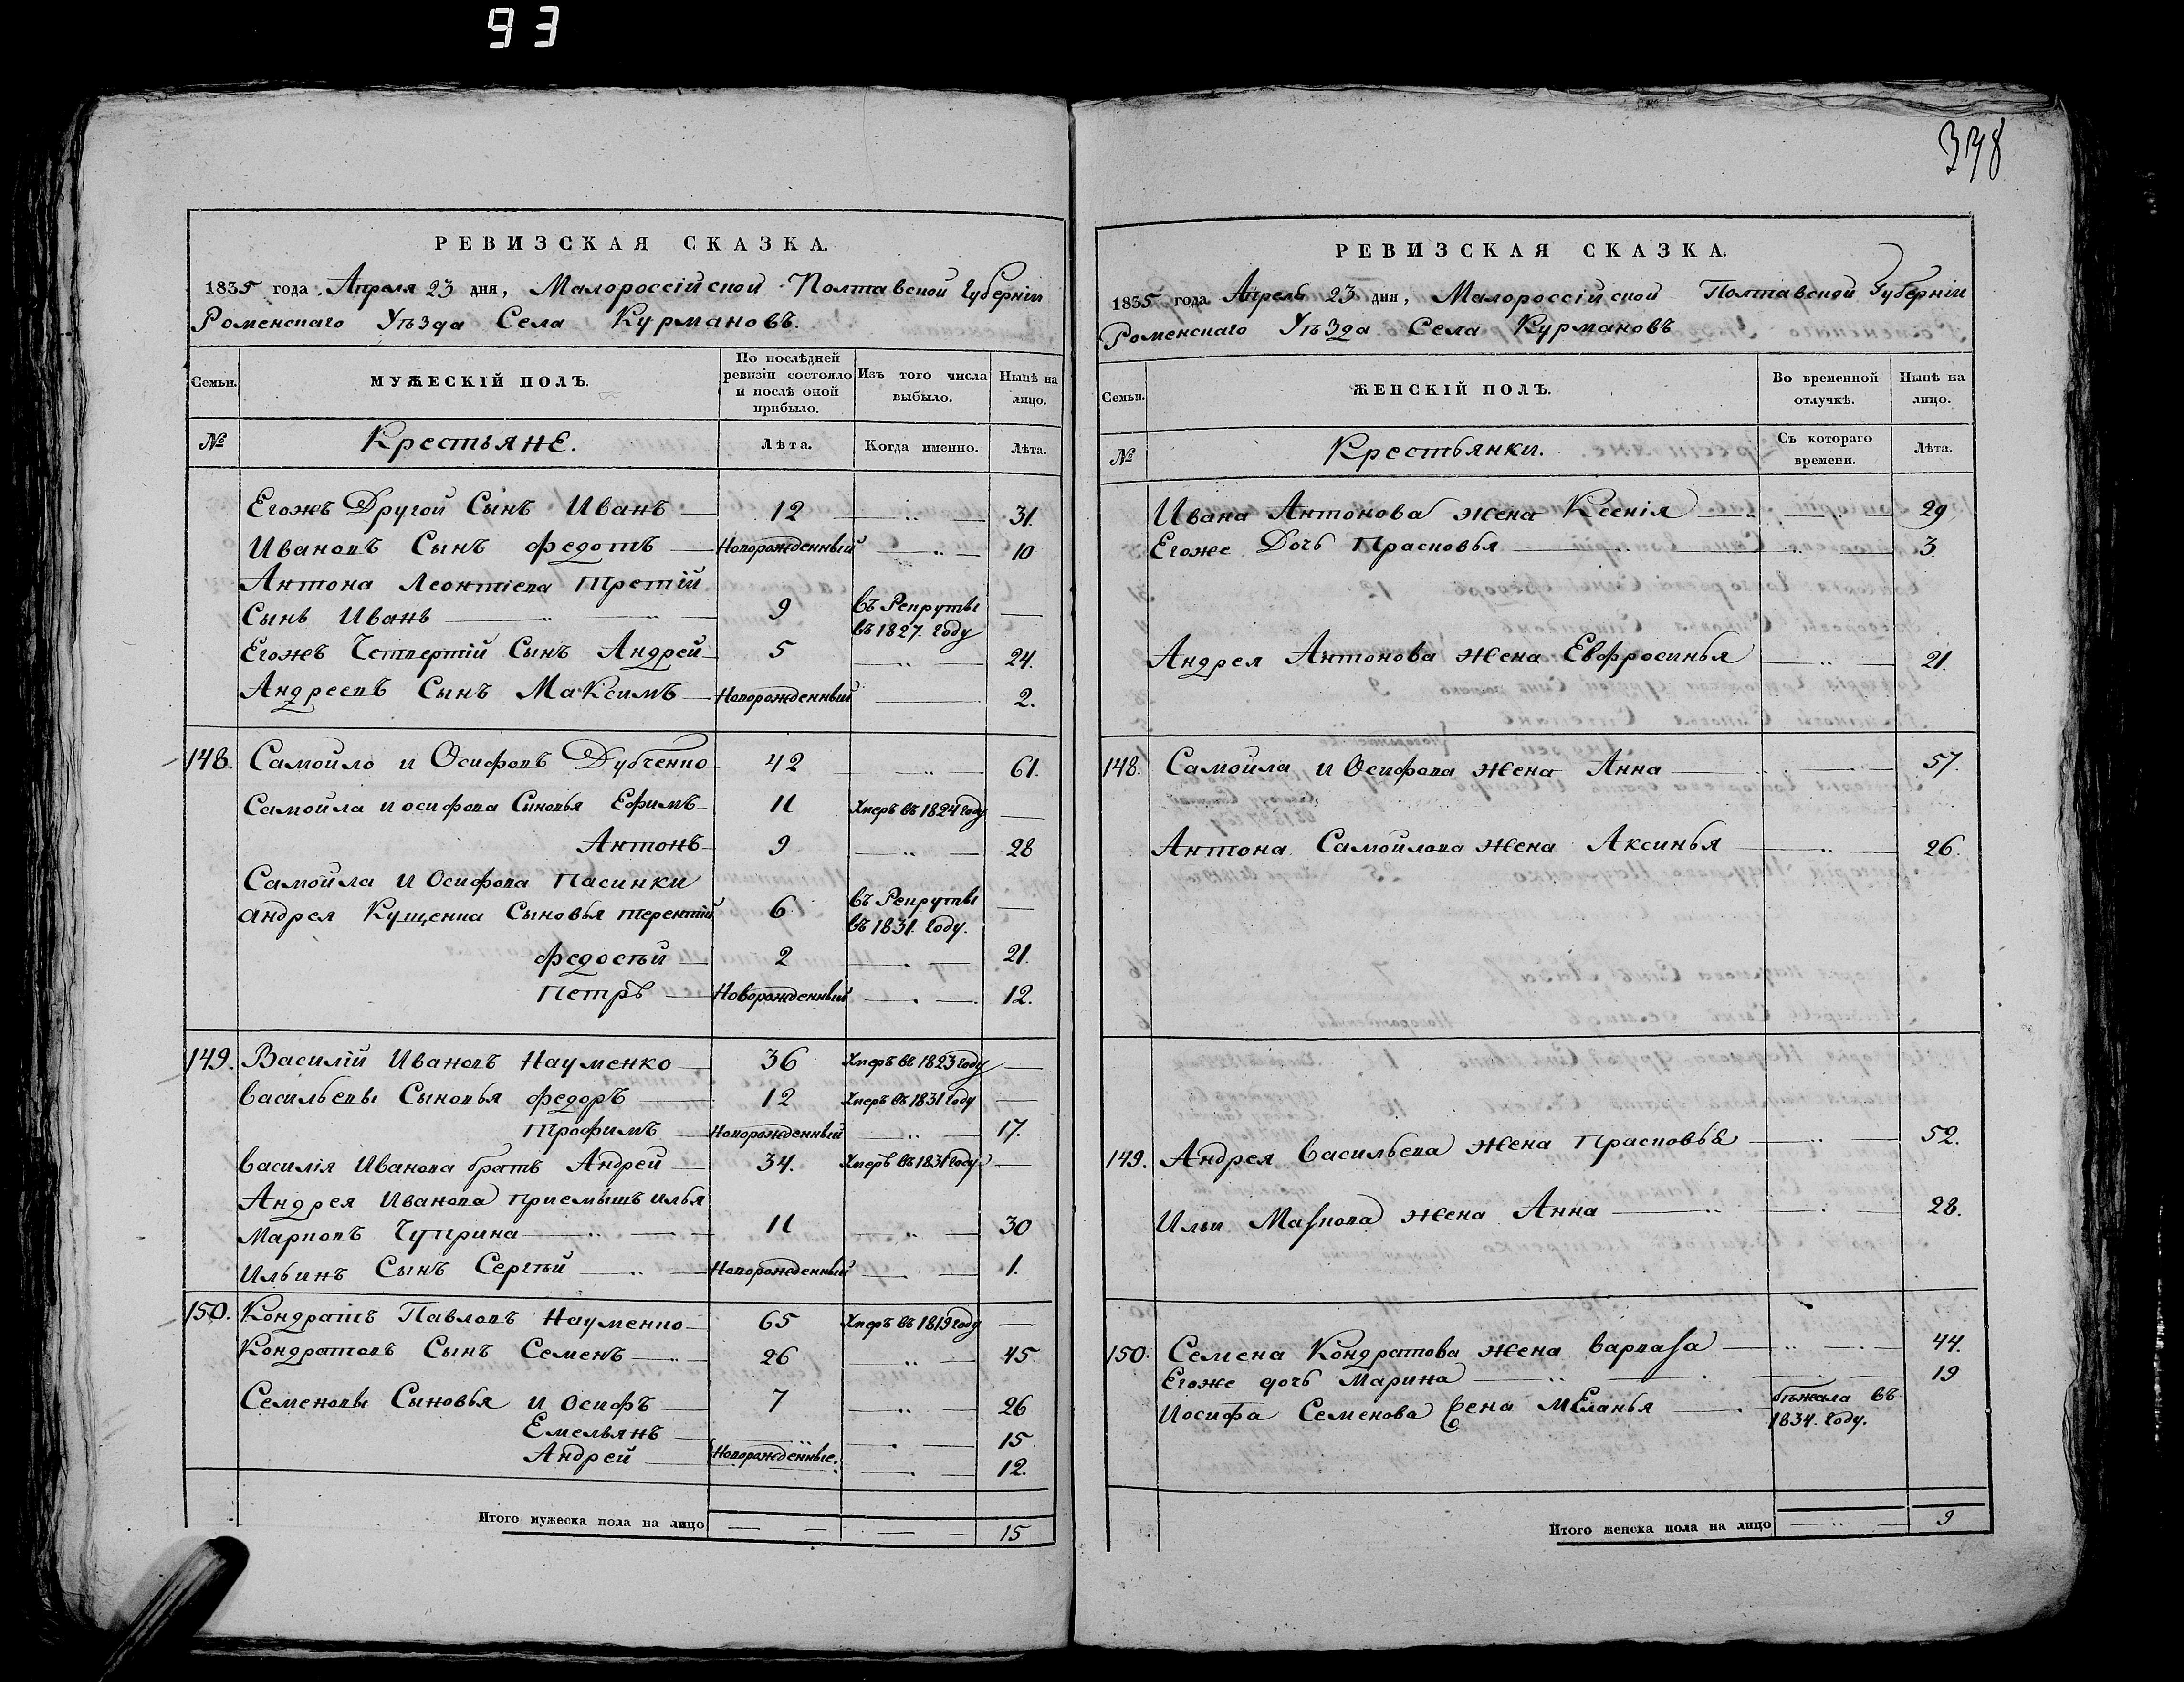 93
РЕВИЗСКАЯ СКАЗКА.
1835 года Апреля 23 дня, Малороссійской Полтавской Губерніи
Роменскаго Уѣзда Села Курмановъ.
Семьи.
МУЖЕСКІЙ ПОЛЪ.
По послѣдней ревизіи состояло и послѣ оной прибыло.
Изъ того числа выбыло.
Нынѣ на лицо.
№ Крестьяне. Лѣта. Когда именно. Лѣта.
Егожъ Другой Сынъ Иванъ 12 31.
Ивановъ Сынъ Федотъ Новорожденный 10
Антона Леонтіева Третій
Сынъ Иванъ 9 въ Рекруты въ 1827. году
Егожъ Четвертій Сынъ Андрей 5 24.
Андреевъ Сынъ Максимъ Новорожденный 2.
148. Самойло Иосифовъ Дубченко 42 61.
Самойла Иосифова Сыновья Ефимъ 11 Умеръ въ 1824 году
Антонъ 9 28
Самойла Иосифова Пасинки
Андрея Кущенка Сыновья Терентій 6 въ Рекруты въ 1831. году.
Федосѣй 2 21.
Петръ Новорожденный 12.
149. Василій Ивановъ Науменко 36 Умеръ въ 1823 году
Васильевы Сыновья Федоръ 12 Умеръ въ 1831 году
Трофимъ Новорожденный 17.
Василія Иванова братъ Андрей 34. Умеръ въ 1831 году
Андрея Иванова приемышъ Илья
Марковъ Чуприна 11 30
Ильинъ Сынъ Сергѣй Новорожденный 1.
150. Кондратъ Павловъ Науменко 65 Умеръ въ 1819 году
Кондратовъ Сынъ Семенъ 26 45
Семеновы Сыновья Иосифъ 7 26
Емельянъ 15
Андрей Новорожденные. 12.
Итого мужеска пола на лицо 15
378
РЕВИЗСКАЯ СКАЗКА.
1835 года Апреля 23 дня, Малороссійской Полтавской Губерніи
Роменскаго Уѣзда Села Курмановъ
Семьи.
ЖЕНСКІЙ ПОЛЪ.
Во временной отлучкѣ.
Нынѣ на лицо.
№ Крестьянки. Съ котораго времени. Лѣта.
Ивана Антонова жена Ксенія 29
Егоже Дочь Прасковья 3.
Андрея Антонова жена Евфросинья 21.
148. Самойла Иосифова жена Анна 57.
Антона Самойлова жена Аксинья 26.
149. Андрея Васильева жена Прасковья 52.
Ильи Маркова жена Анна 28.
150. Семена Кондратова жена Варвара 44.
Егоже дочь Марина 19
Иосифа Семенова жена Меланья бѣжала въ 1834. году.
Итого женска пола на лицо 9